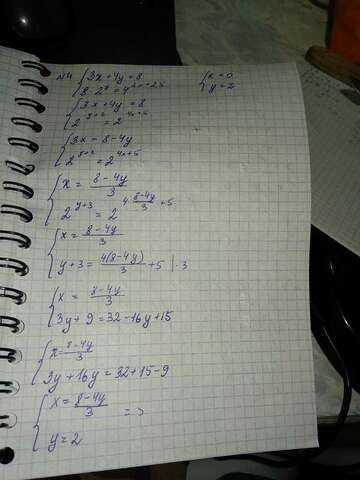 N4 {3x+4y=8
8·2^y=4^2x+2,5
{x=0
y=2
{3x+4y=8
2^y+3=2^4x+5
{3x=8-4y
2^y+3=2^4x+5
{x=(8-4y)/3
2^y+3=2^4·(8-4y)/3+5
{x=(8-4y)/3
y+3=4(8-4y)/3+5 |·3
{x=(8-4y)/3
3y+9=32-16y+15
{x=(8-4y)/3
3y+16y=32+15-9
{x=(8-4y)/3 =>
y=2